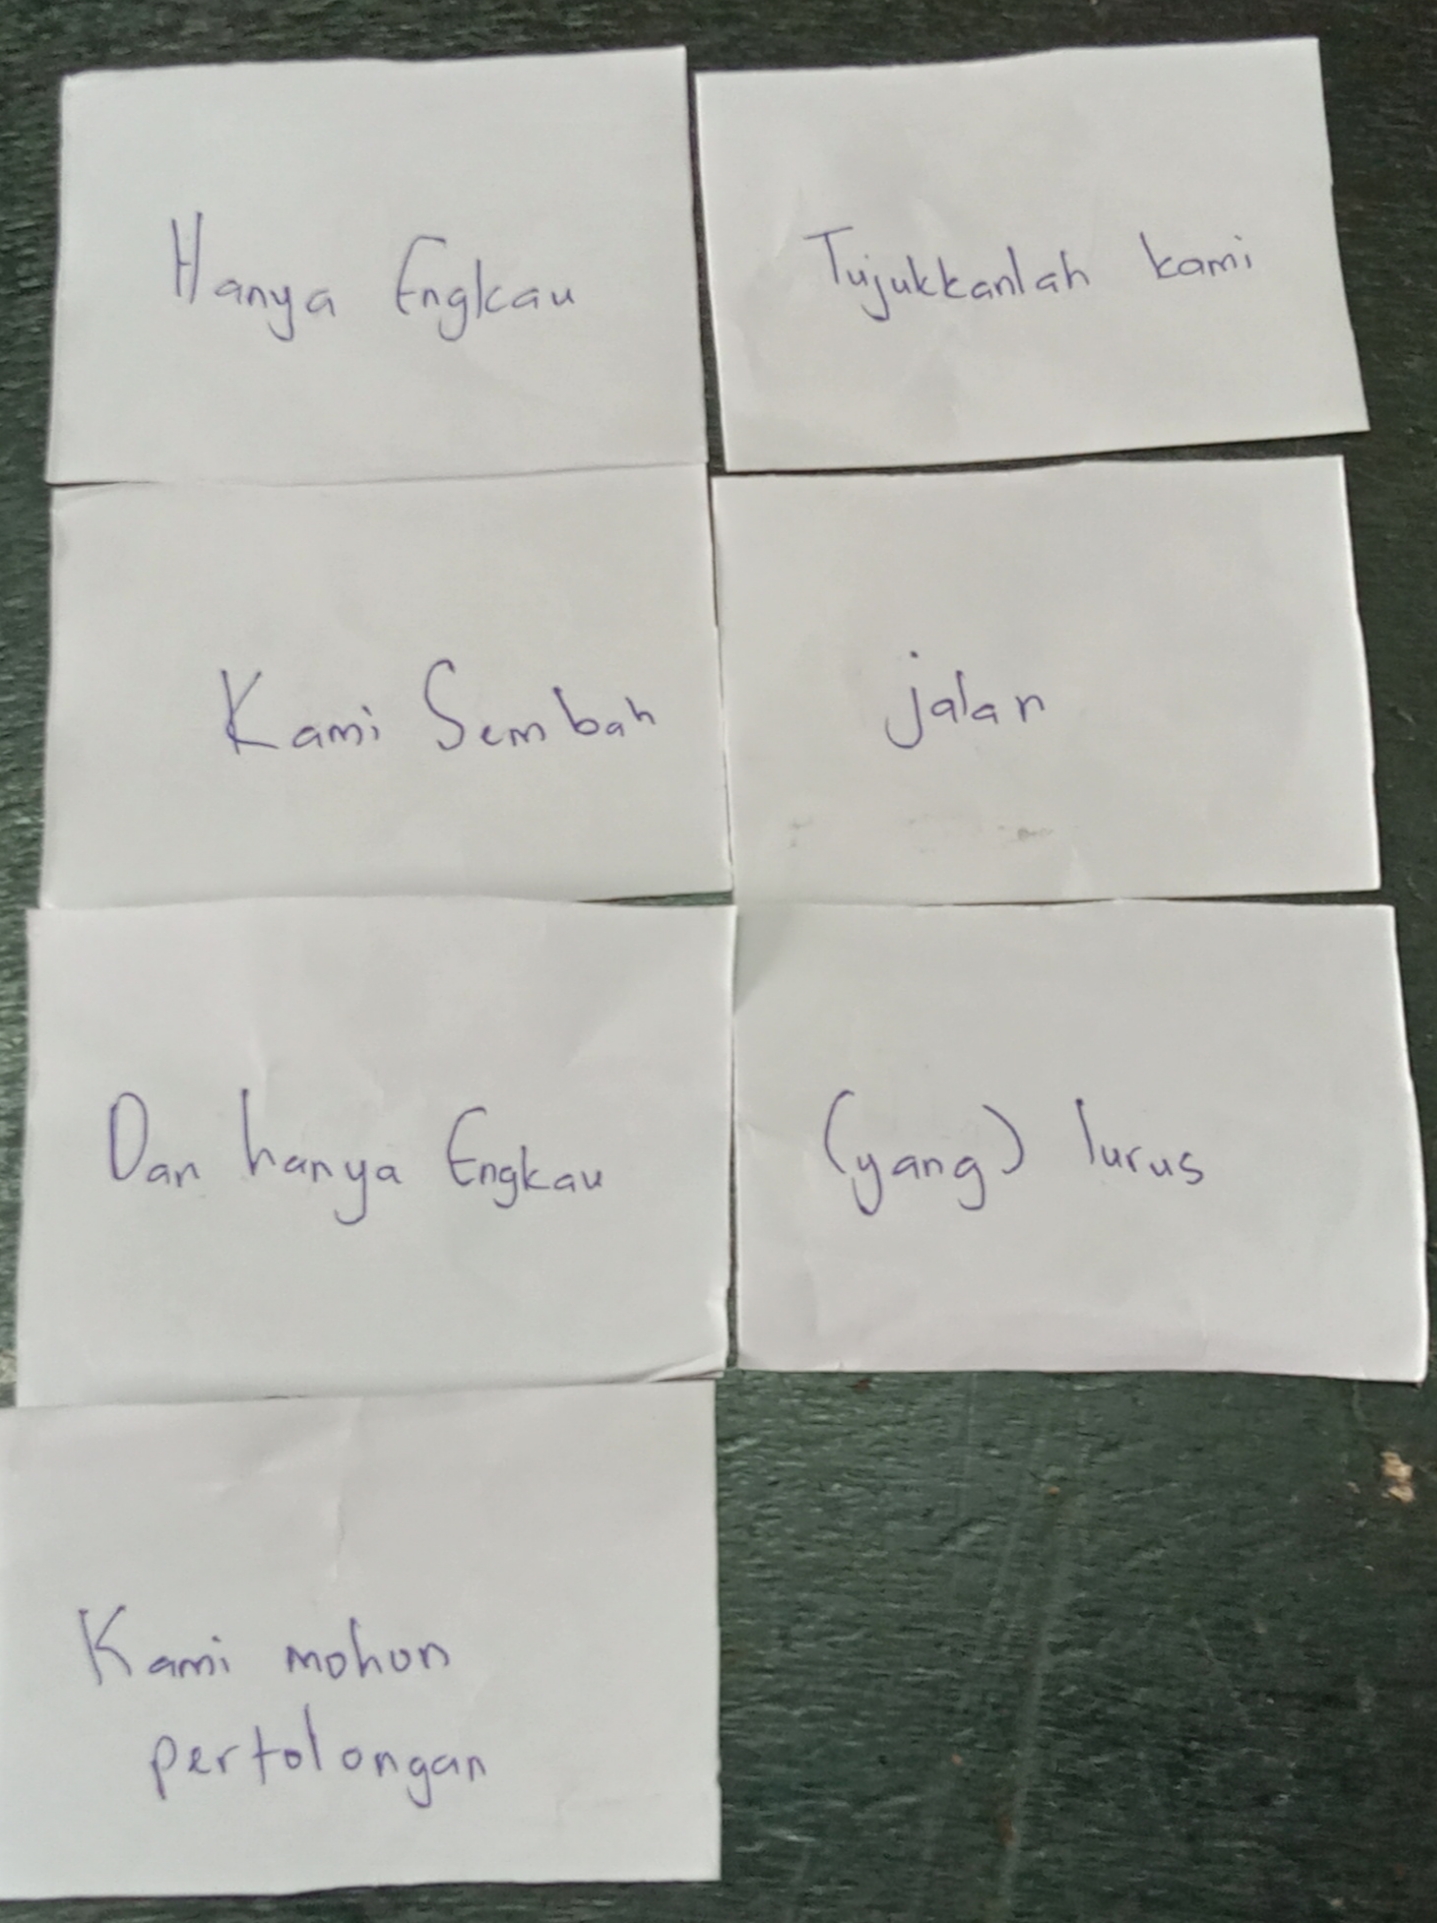 Hanya Engkau
Kami Sembah
Dan hanya Engkau
Kami mohon
pertolongan
Tujukkanlah kami
jalan
(yang) lurus